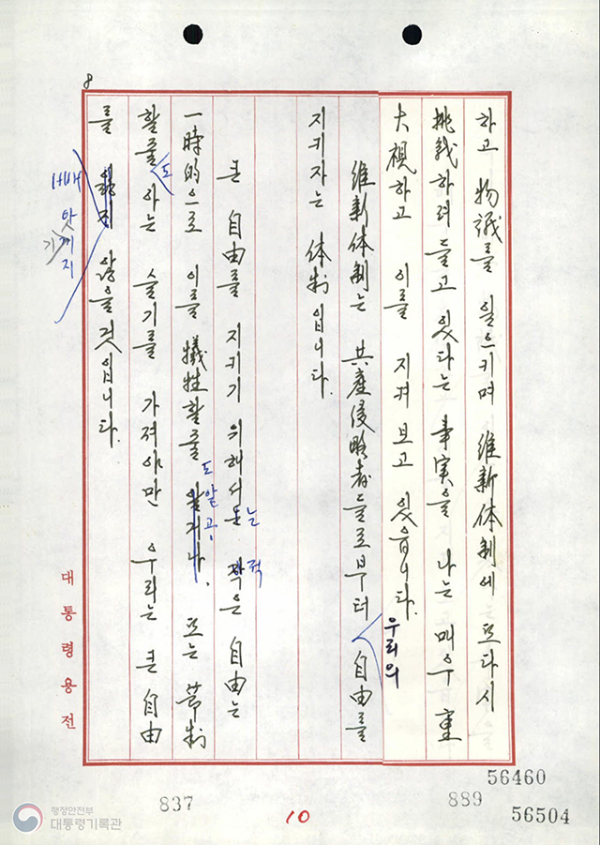 8
하고 物議를 일으키며 維新体制에 또다시
挑戰하려 들고 있다는 事実을 나는 매우 重
大視하고 이를 지켜 보고 있읍니다.
우리의
維新体制는 共産侵略者들로부터 自由를
지키자는 体制입니다.
큰 自由를 지키기 위해서는 작은 自由는
적
一時的으로 이를 犧牲할줄 알거나, 또는 節制
도 알고,
할줄도 아는 슬기를 가져야만 우리는 큰 自由
를 않을것입니다.
빼앗기지
대통령용전
56460
837
889
10
56504
행정안전부
대통령기록관